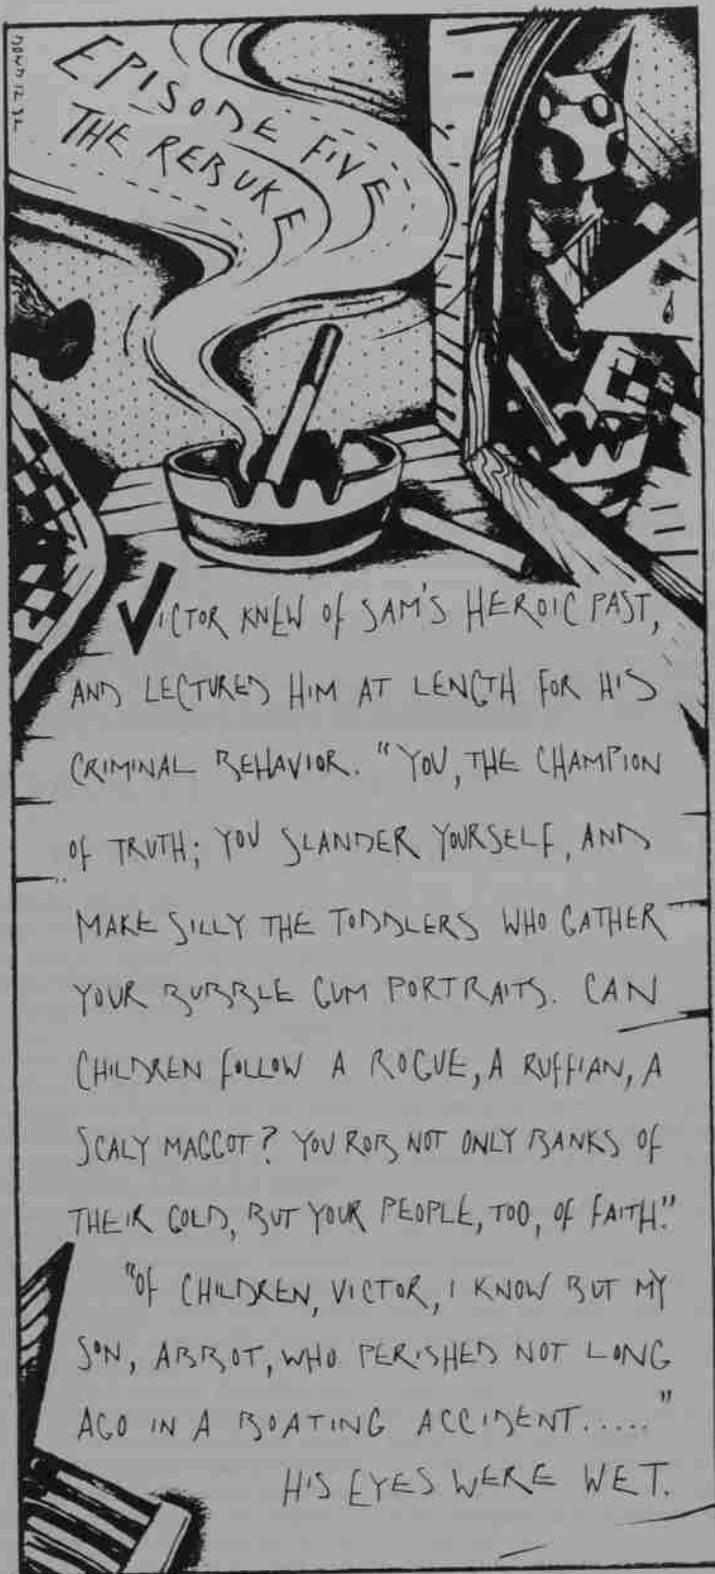 EPISODE FIVE
THE REBUKE
VICTOR KNEW OF SAM'S HEROIC PAST,
AND LECTURED HIM AT LENGTH FOR HIS
CRIMINAL BEHAVIOR. "YOU, THE CHAMPION
OF TRUTH; YOU SLANDER YOURSELF, AND
MAKE SILLY THE TODDLERS WHO GATHER
YOUR BUBBLE GUM PORTRAITS. CAN
CHILDREN FOLLOW A ROGUE, A RUFFIAN, A
SCALY MAGGOT? YOU ROB NOT ONLY BANKS OF
THEIR GOLD, BUT YOUR PEOPLE, TOO, OF FAITH."
"OF CHILDREN, VICTOR, I KNOW BUT MY
SON, ABBOT, WHO PERISHED NOT LONG
AGO IN A BOATING ACCIDENT....."
HIS EYES WERE WET.